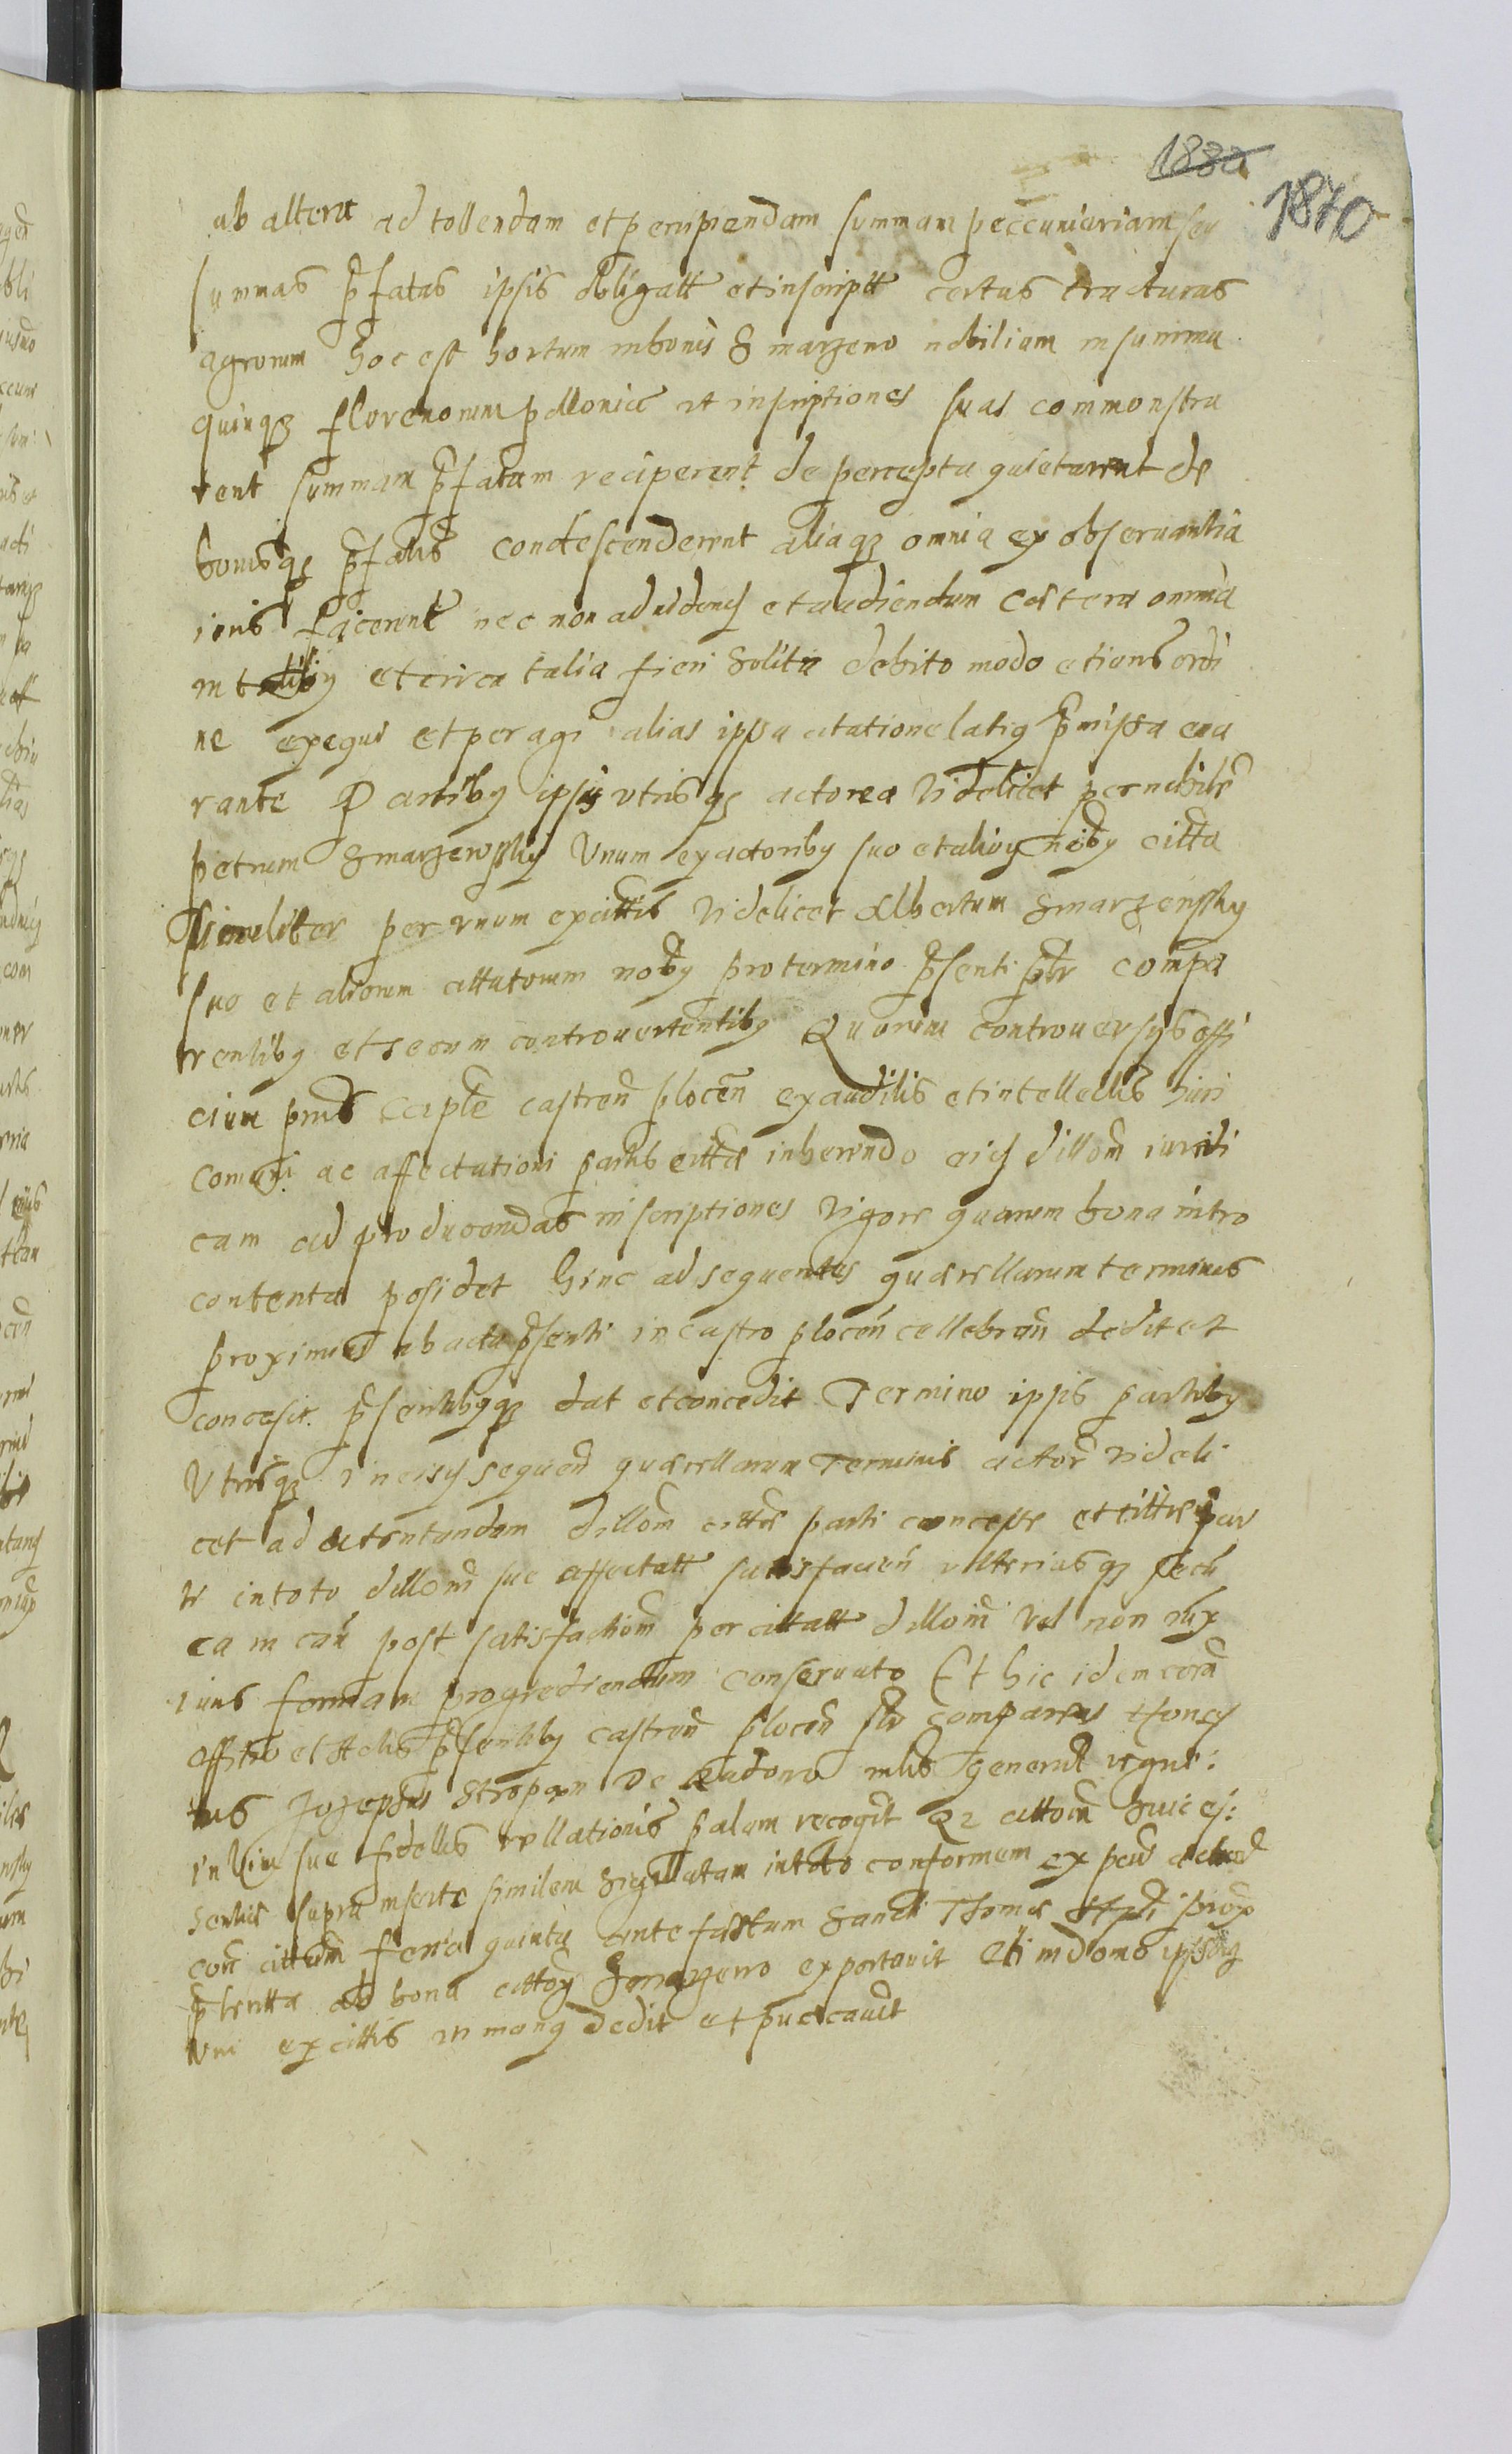 1882
1870
ab altera ad tollendam et percipiendam summam peccuniariam seu
summas pfatas ipsis obligatt et inscriptt certas tracturas
agrorum hoc est hortum in bonis Smarzeno nobilium in summa
quinqz florenorum pollonice ut inscriptiones suas commonstra
rent summam pfatam reciperent de percepta quietarent de
bonisqz pfatis condescenderent aliaqz omnia ex observantia
iuris facerent nec non ad videndum et audiendum caetera omnia
in talibus et circa talia fieri solita debito modo et iuris ordi
ne exequi et peragi alias ipsa citatione latius pmissa ena
rante Partibus ipsis utrisqz actorea videlicet per nobilem
petrum Smarzewsky unum ex actoribus suo et aliorum noibus citta
similiter per unum ex cittis videlicet Albertum Smarzensky
suo et aliorum cittatorum noibus pro termino psenti ptr compa
rentibus et secum controvertentibus Quorum controversys offi
cium pns Capte castren plocen exauditis et intellectis juri
comuni ac affectationi partis citte inherendo eius dillom iuridi
cam ad producendas inscriptiones vigore quarum bona intro
contenta posidet hinc ad sequentes querellarum terminos
proximos ab actu psenti in castro plocen cellebran dedit et
concesit psentibusqz dat et concedit Termino ipsis partibus
Utrisqz in eisdem sequen querellarum Terminis actore videli
cet ad attentandam dillom citte parti concesse et citte par
te in toto dillom sue affectatt satisfacien ulteriusqz secu
ea in cau post satisfactiom per citatt dillom vel non iux
iuris formam progrediendum conservato Et hic idem coram
offitio et Actis psentibus castren plocen ptr comparens hones
tus Jozephus Stropxn de Radono mlis generalis regni:
in vim sue fidellis rellationis palam recogt Qz cittoem huic ej:
sentie supra inserte similem Sigillatam in toto conformem ex parte actorea
con cittam feria quinta ante festum Sancti Thomae Apli prox
pterita ad bona cittorum Smarzeno exportavit et in domo ipsorum
uni ex cittis in manus dedit et publicavit